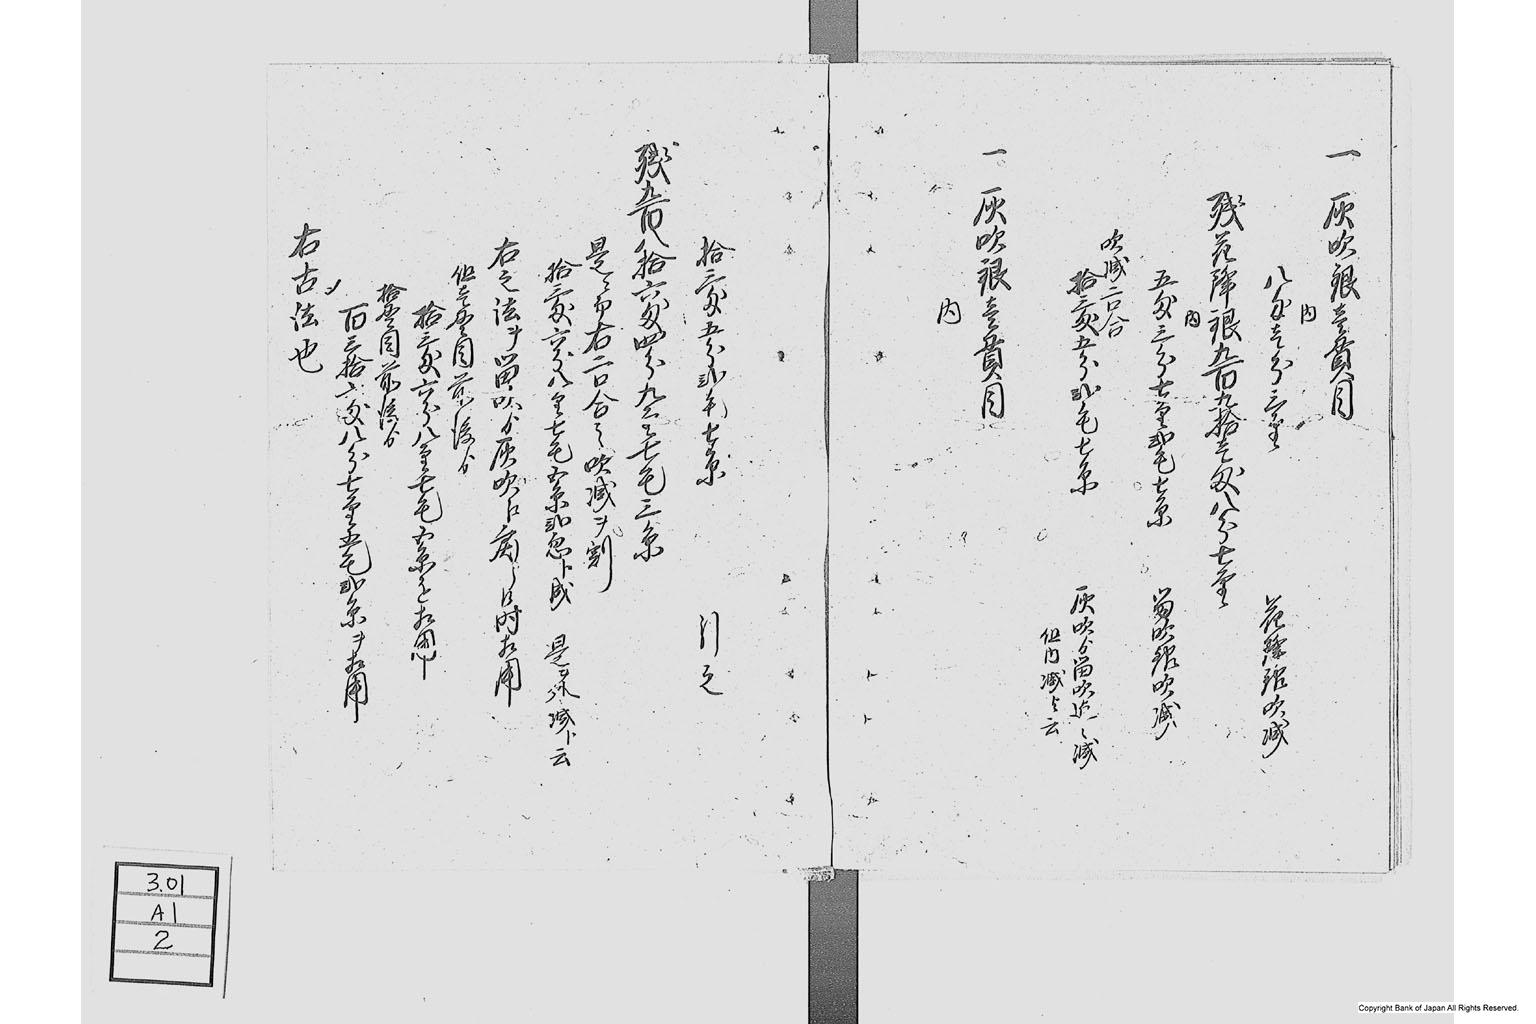 一 灰吹銀壱貫目
内
八匁壱分三厘 花降銀吹減
残花降銀九百九拾壱匁八分七厘
内
五匁三分七厘弐毛七糸 留吹銀吹減
吹減二口合
拾三匁五分弐毛七糸 灰吹ゟ留吹迄之減
但内減と云
一 灰吹銀壱貫目
内
拾三匁五分弐毛七糸 引之
残九百八拾六匁四分九厘七毛三糸
是ニ而右二口合之吹減ヲ割
拾三匁六分八厘七毛五糸弐忽ト成 是ヲ外減ト云
右之法ヲ留吹ゟ灰吹ニ直シ候時相用
但壱貫目前後ゟ
拾三匁六分八厘七毛五糸を相用
拾貫目前後ゟ
百三拾六匁八分七厘五毛弐糸ヲ相用
右古法也
3.01
A1
2
Copyright Bank of Japan All Rights Reserved.